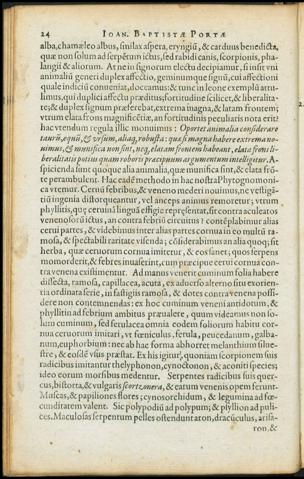 24 IOAN. BAPTISTÆ PORTÆ
alba, chamæleo albus, smilax aspera, eryngiũ, & carduus benedicta,
quæ non solum ad serpẽtum ictus, sed rabidi canis, scorpionis, pha-
langii & aliorum. At ne in signorum electu decipiamur, si insit vni
animaliũ generi duplex affectio, geminumque signũ, cui affectioni
quale indiciũ conueniat, doceamus: & tunc in leone exemplũ attu-
limus, qui duplici affectu præditus, fortitudine scilicet, & liberalita-
te; & duplex signum præferebat, extrema magna, & latam frontem;
vtrum elata frons magnificẽtiæ, an fortitudinis peculiaris nota erit?
hac vtendum regula illic monuimus: Oportet animalia considerare
taurũ, equũ, & visum, aliaq; robusta: quæ si magna habere extrema no-
uimus, & munifica non sint, neq; elatam frontem habeant, elata frons li-
beralitatis potius quam roboris præcipuum argumentum intelligitur. A-
spicienda sunt quoque alia animalia, quæ munifica sint, & elata frõ-
te perambulent. Hac eadẽ methodo in hac nostra Phytognomoni-
ca vtemur. Cernũ febribus, & veneno mederi nouimus, ne vestigã-
tiũ ingenia distorqueantur, vel anceps animus remoretur; vtrum
phyllitis, quę ceruinã linguã effigie repræsentat, sit contra aculeatos
venenosos ictus, an contra febriũ circuitus? contẽplabimur alias
cerui partes, & videbimus inter alias partes cornua in eo multũ ra-
mosa, & spectabili raritate visenda; cõsiderabimus an alia quoq; sit
herba, quæ ceruorum cornua imitetur, & eos sanet; quos serpens
momorderit, & febres inuaserint, cum præcipue cerui cornua con-
tra venena existimentur. Ad manus venit cuminum folia habere
dissecta, ramosa, capillacea, acuta, ex aduerso alterno situ exorien-
tia ordinata serie, in fastigiis ramosa, & dotes contra venena possi-
dere non contemnendas: ex hoc cuminum veneni antidotum, &
phyllitin ad febrium ambitus præualere, quum videamus non so-
lum cuminum, sed ferulacea omnia eodem foliorum habitu cor-
nua ceruorum imitari, vt fœniculus, ferula, peucedanum, galba-
num, euphorbium: nec ab hac forma abhorret melanthium silue-
stre, & eosdẽ vsus præstat. Ex his igitur, quoniam scorpionem suis
radicibus imitantur thelyphonon, cynoctonon, & aconiti species;
ideo eorum morsibus medentur. Serpentes radicibus suis quer-
cus, bistorta, & vulgaris scorzonera, & earum venenis opem ferunt.
Muscas, & papiliones flores; cynosorchidum, & legumina ad fœ-
cunditatem valent. Sic polypodiũ ad polypum; & psyllion ad puli-
ces. Maculosas serpentum pelles ostendunt aron, dracũculus, arisa-
ron, &